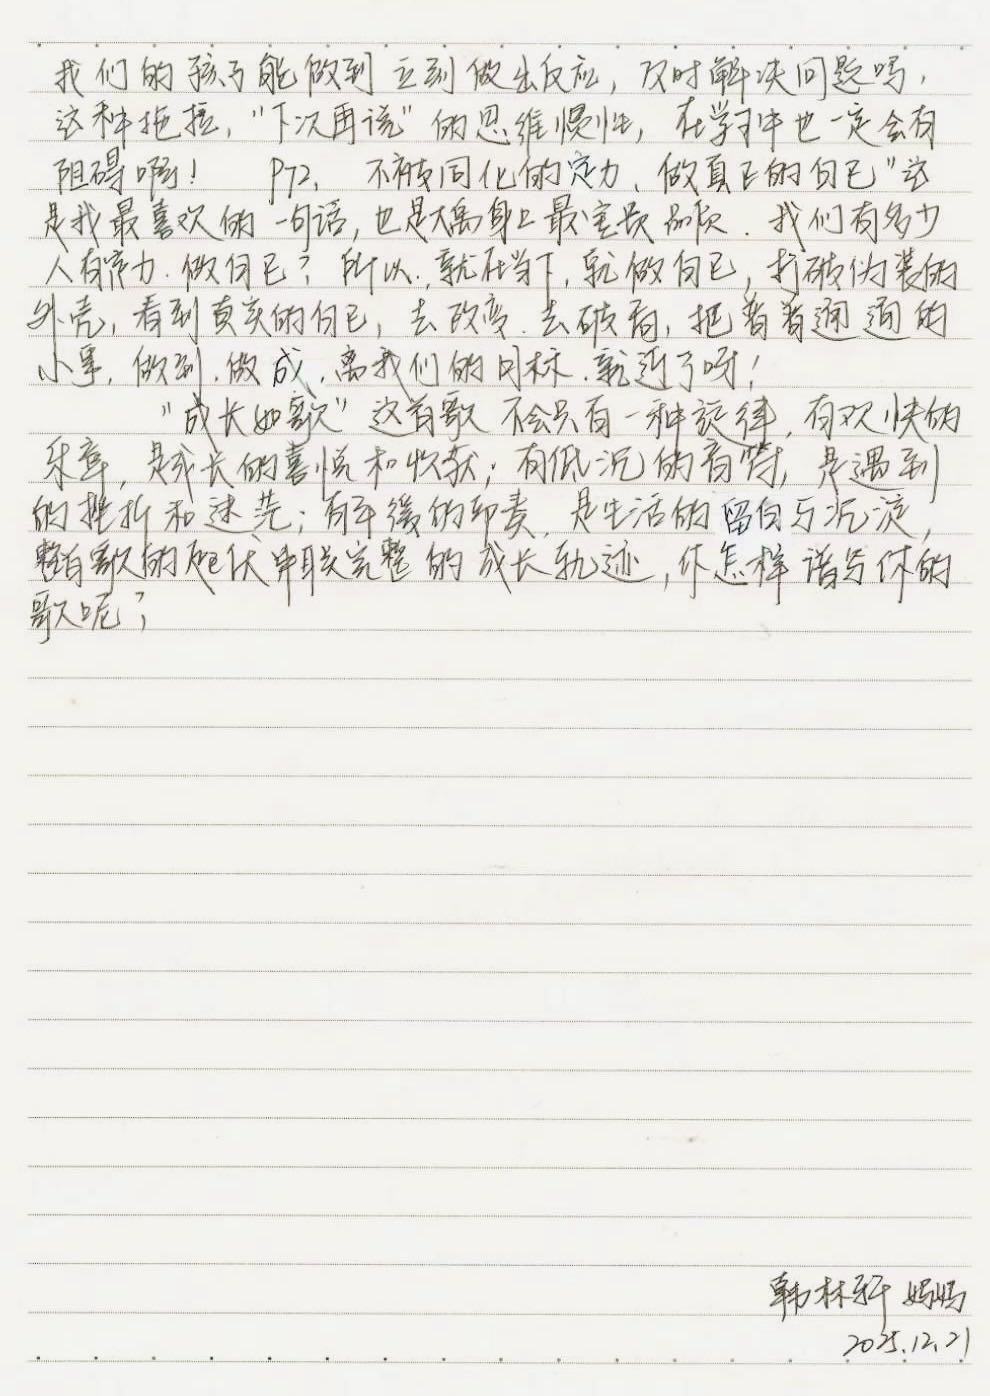 我们的孩子能做到立刻做出反应，及时解决问题吗，
这种拖拉，“下次再说”的思维惯性，在学习中也一定会有
阻碍啊！ P72、不被同化的定力、做真正的自己”这
是我最喜欢的一句话，也是大禹身上最宝贵品质．我们有多少
人有定力．做自己？所以．就在当下，就做自己，打破伪装的
外壳，看到真实的自己，去改变．去破局，把普普通通的
小事，做到．做成，离我们的目标．就近了呀！
“成长如歌”这首歌不会只有一种旋律，有欢快的
乐章，是成长的喜悦和收获；有低沉的音符，是遇到
的挫折和迷茫；有平缓的节奏，是生活的留白与沉淀，
整首歌的起伏串联完整的成长轨迹，你怎样谱写你的
歌呢？
韩林轩 妈妈
2025.12.21